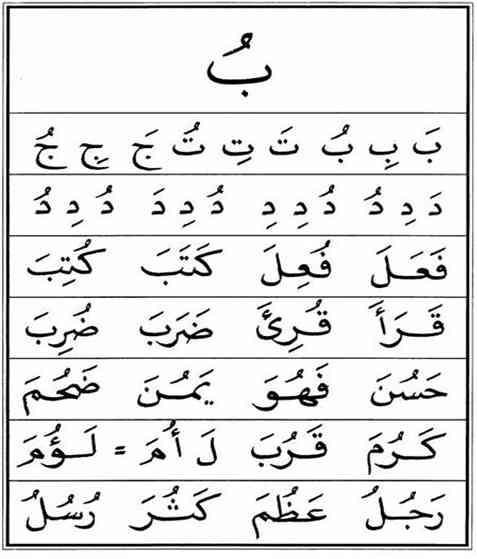 بُ
بَ بِ بُ تَ تِ تُ جَ جِ جُ
دَ دِ دُ دُ دِ دِ دُ دِ دَ دُ دِ دُ
فَعَلَ فُعِلَ كَتَبَ كُتِبَ
قَرَأَ قُرِئَ ضَرَبَ ضُرِبَ
حَسُنَ فَهُوَ يَمُنَ ضَخُمَ
كَرُمَ قَرُبَ لَ أُمَ = لَؤُمَ
رَجُلُ عَظُمَ كَثُرَ رُسُلُ